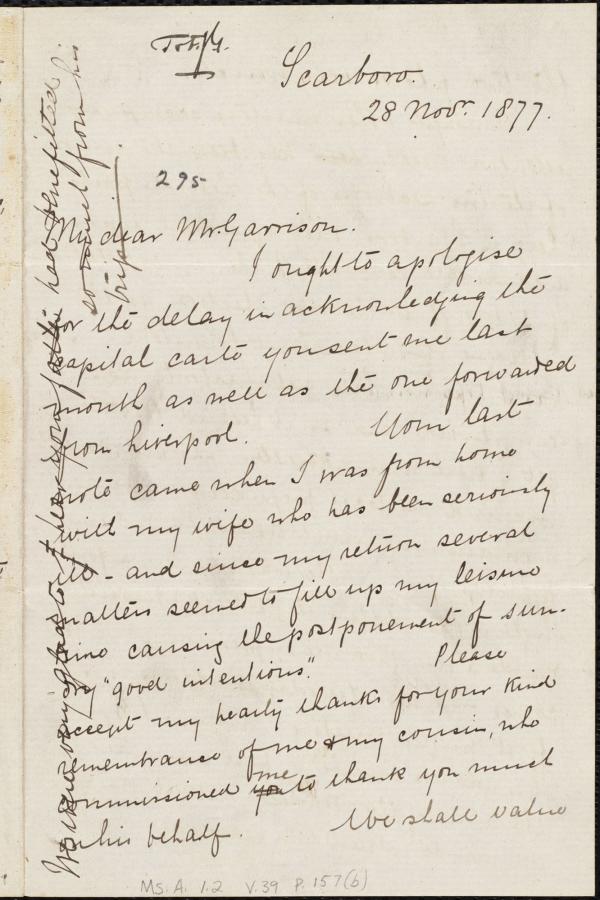 T.O.
Scarboro.
28 Novr. 1877.
295
My dear Mr. Garrison.
I ought to apologise
for the delay in acknowledging the
capital carte you sent me last
month as well as the one forwarded
from Liverpool. Your last
note came when I was from home
with my wife who has been seriously
ill - and since my return several
matters seemed to fill up my leisure
time causing the postponement of sun-
dry "good intentions". Please
accept my hearty thanks for your kind
remembrance of me & my cousin, who
commissioned you me to thank you much
on his behalf. We shall value
We were very glad to hear your father had benefitted
so much from his
trip.
Ms. A. 1.2 V. 39 P. 157(b)